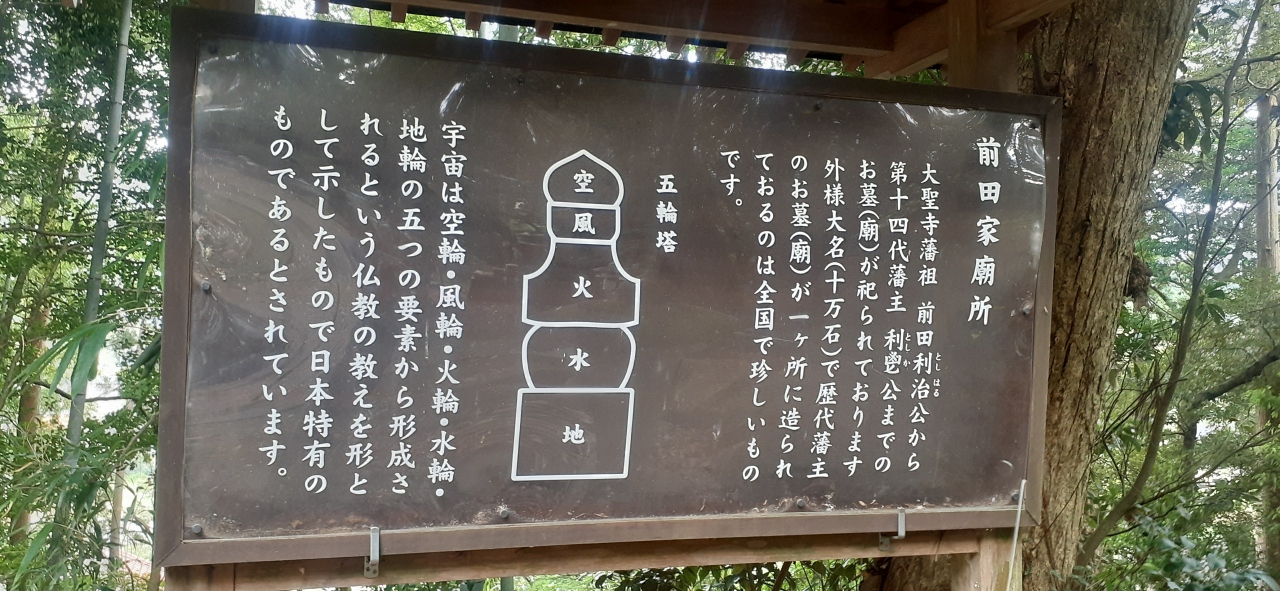 前田家廟所
としはる
大聖寺藩祖 前田利治公から
としか
第十四代藩主 利鬯公までの
お墓(廟)が祀られております
外様大名(十万石)で歴代藩主
のお墓(廟)が一ヶ所に造られ
ておるのは全国で珍しいもの
です。
五輪塔
空
風
火
水
地
宇宙は空輪・風輪・火輪・水輪・
地輪の五つの要素から形成さ
れるという仏教の教えを形と
して示したもので日本特有の
ものであるとされています。